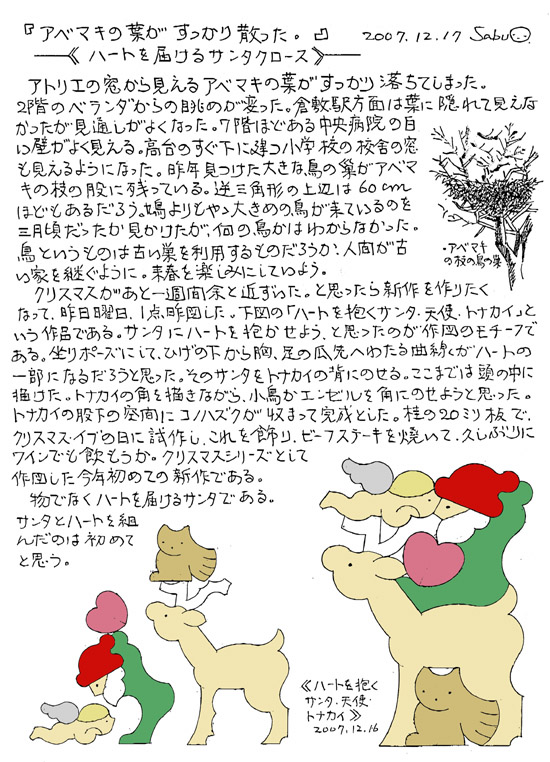 『アベマキの葉がすっかり散った。』 2007.12.17 Sabu
《ハートを届けるサンタクロース》
アトリエの窓から見えるアベマキの葉がすっかり落ちてしまった。
2階のベランダからの眺めが変った。倉敷駅方面は葉に隠れて見えな
かったが見通しがよくなった。7階ほどある中央病院の白
い壁がよく見える。高台のすぐ下に建つ小学校の校舎の窓
も見えるようになった。昨年見つけた大きな鳥の巣がアベマ
キの枝の股に残っている。逆三角形の上辺は60cm
ほどもあるだろう。鳩よりもやゝ大きめの鳥が来ているのを
三月頃だったか見かけたが、何の鳥かはわからなかった。
鳥というものは古い巣を利用するものだろうか、人間が古
い家を継ぐように。来春を楽しみにしていよう。
・アベマキ
の枝の鳥の巣
クリスマスがあと一週間余と近ずいた。と思ったら新作を作りたく
なって、昨日曜日、1点昨図した。下図の「ハートを抱くサンタ・天使、トナカイ」と
いう作品である。サンタにハートを抱かせよう、と思ったのが作図のモチーフで
ある。坐りポーズにして、ひげの下から胸、足の爪先へわたる曲線がハートの
一部になるだろうと思った。そのサンタをトナカイの背にのせる。ここまでは頭の中に
描けた。トナカイの角を描きながら、小鳥かエンゼルを角にのせようと思った。
トナカイの股下の空間にコノハズクが収まって完成とした。桂の20ミリ板で、
クリスマス・イブの日に試作し、これを飾り、ビーフステーキを焼いて、久しぶりに
ワインでも飲もうか。クリスマスシリーズとして
作図した今年初めての新作である。
物でなくハートを届けるサンタである。
サンタとハートを組
んだのは初めて
と思う。
《ハートを抱く
サンタ・天使・
トナカイ》
2007.12.16